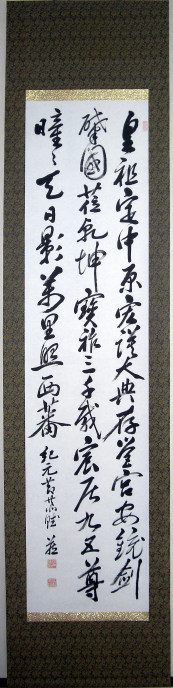 皇祖定中原宏謨大典存営宮安鏡剣
肇國莅乾坤寶祚三千歳宸居九五尊
曈々天日影萬里照西蕃 紀元節恭賦